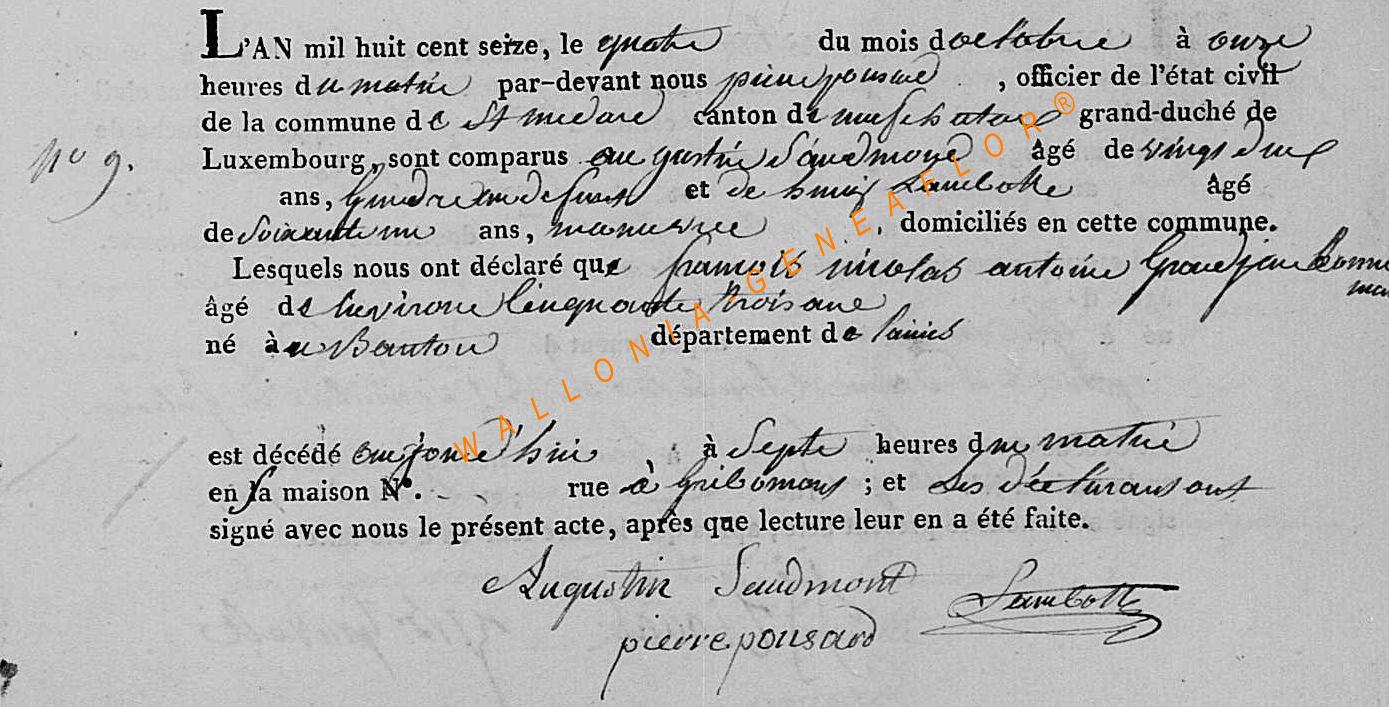 L'AN mil huit cent seize, le quatre du mois d'octobre à onze
heures du matin par-devant nous pierre pousard, officier de l'état civil
de la commune de St medard canton de neufchateau grand-duché de
No 9. Luxembourg, sont comparus augustin Saudmont âgé de vingt deux
ans, gendre du defunt et Lambotte âgé
de Soixante un ans, manuvre, domiciliés en cette commune.
Lesquels nous ont déclaré que françois nicolas antoine Grandjean
âgé de henviron Cinquante troisans
né à département de
est décédé aujourd'hui, à Septe heures du matin
en sa maison No. rue à Gribomons ; et Les déclarans ont
signé avec nous le présent acte, après que lecture leur en a été faite.
Augustin Saudmont Lambotte
pierre pousard
WALLONIA-GENEAFLOR®